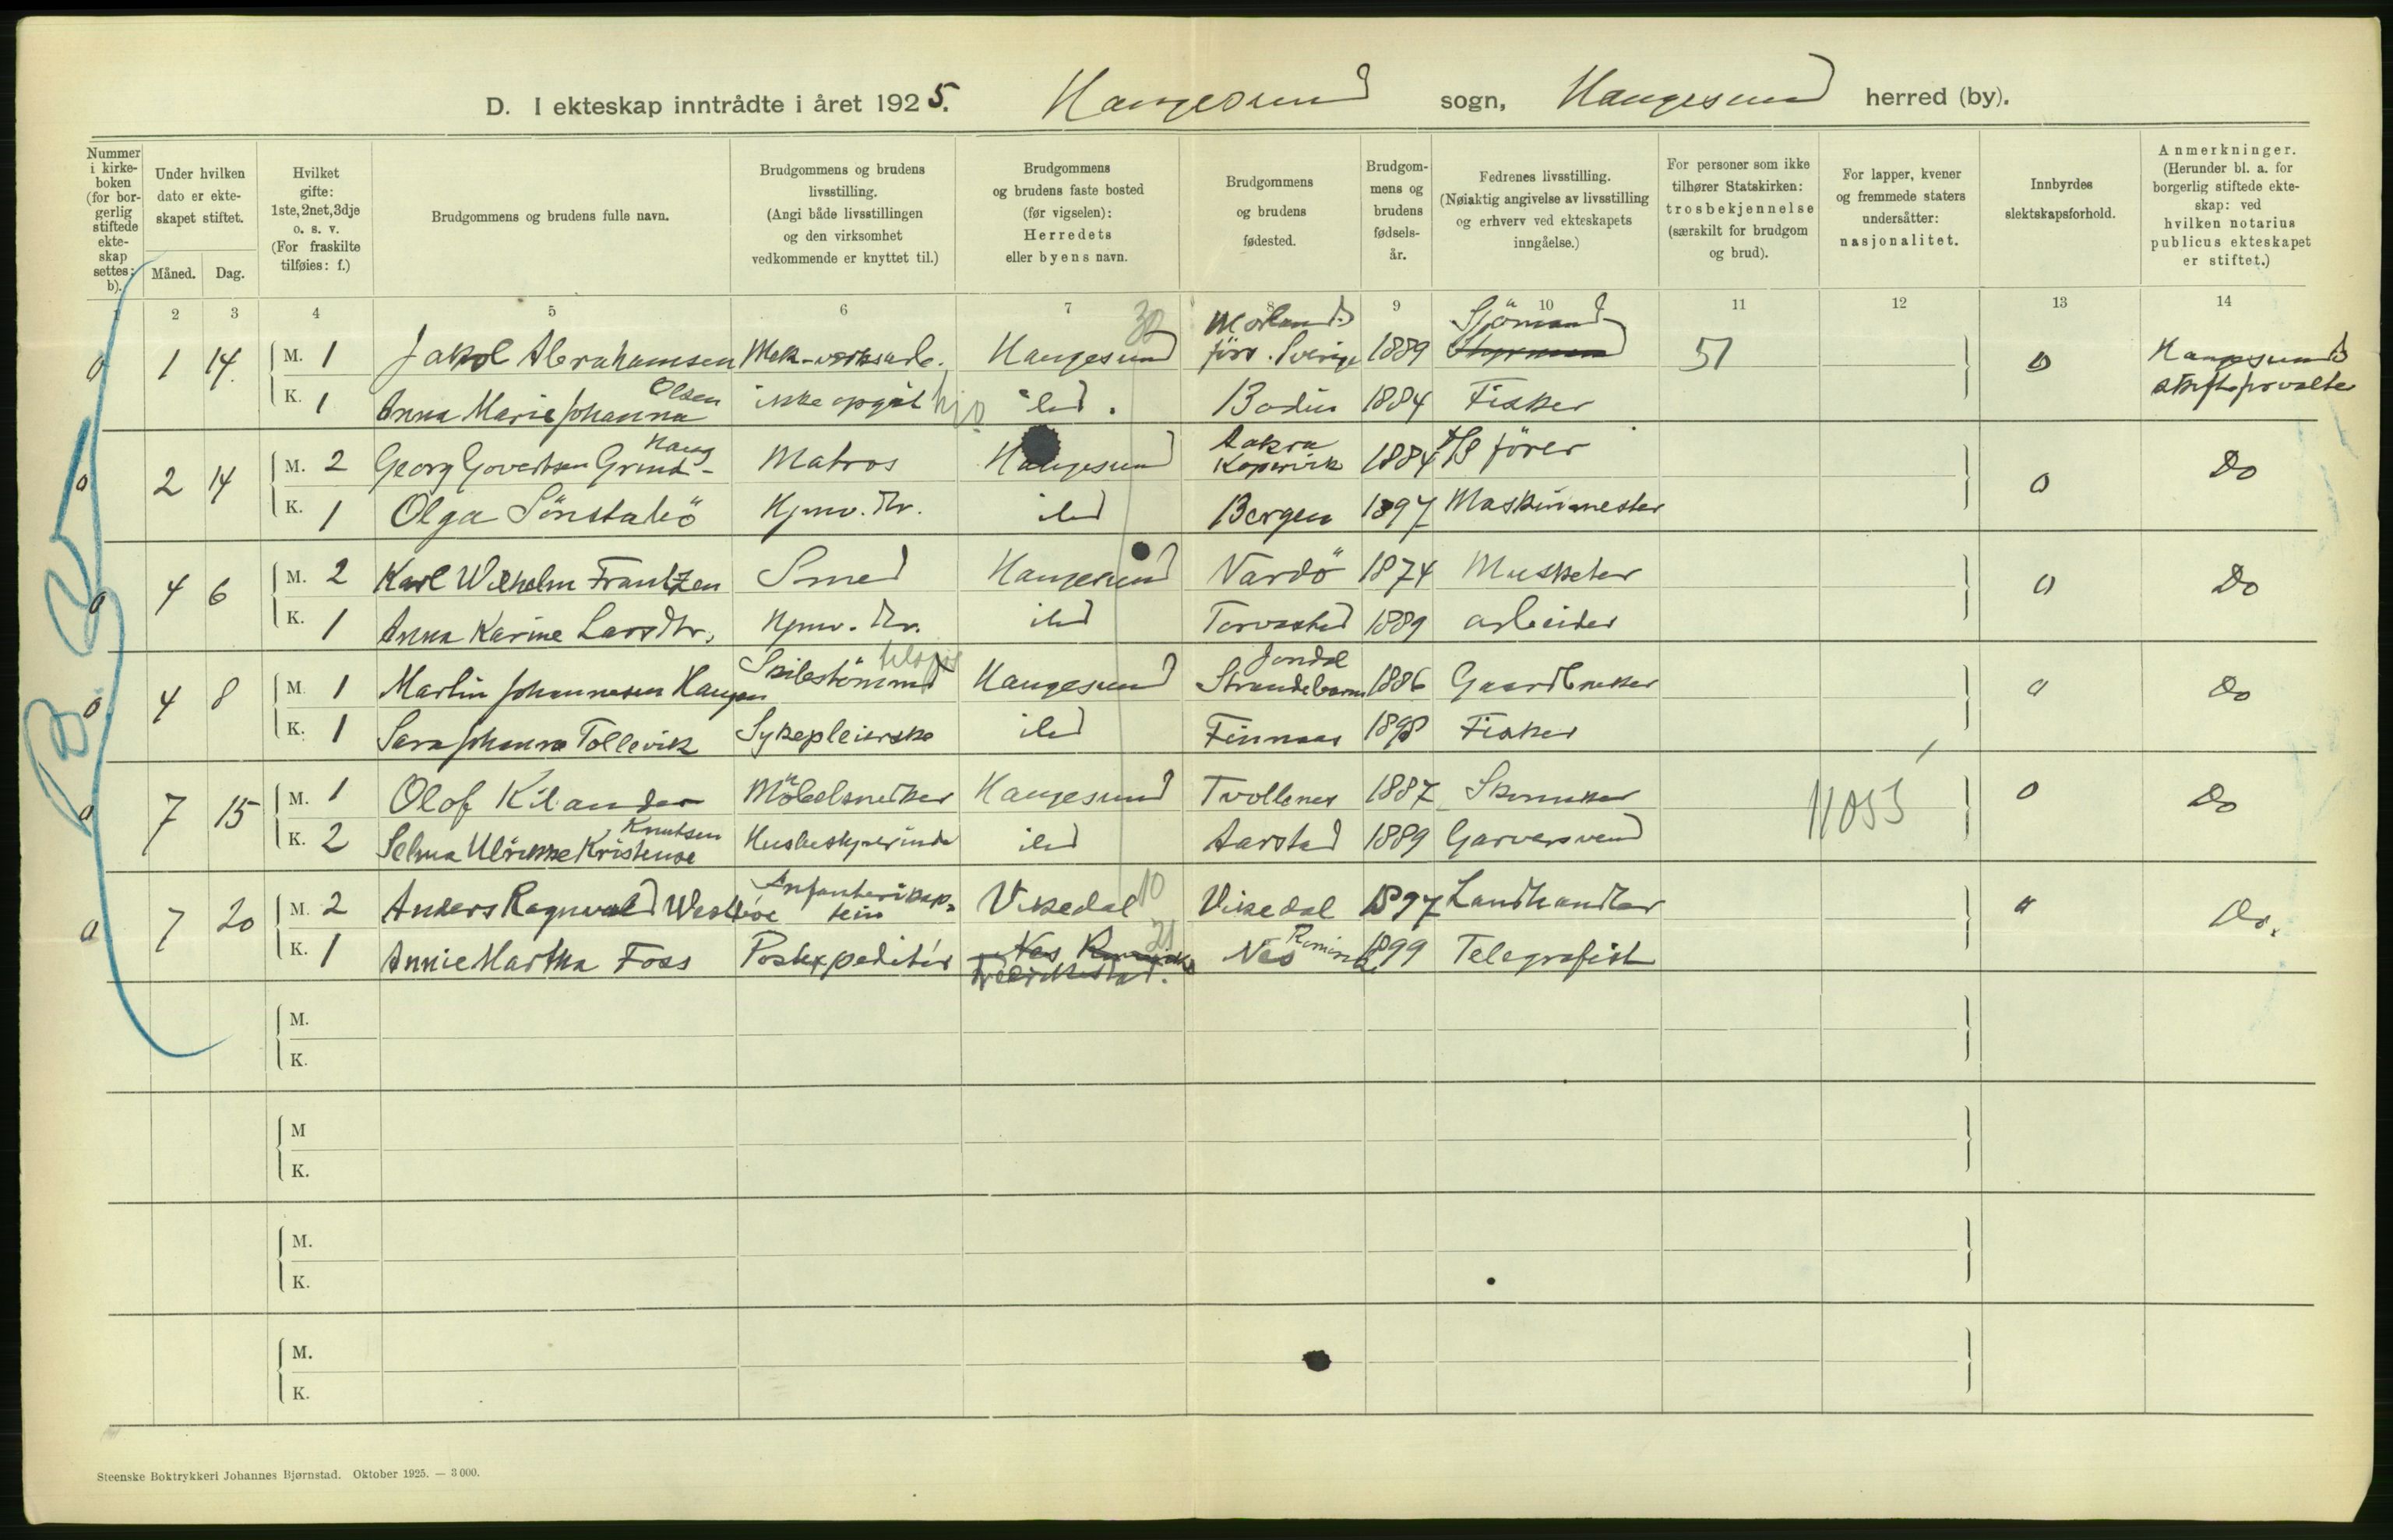 D. I ekteskap inntrådte i året 1925. Haugesund sogn, Haugesund herred (by).
Nummer i kirke- boken (for bor- gerlig stiftede ekte- skap settes: b).
Under hvilken dato er ekte- skapet stiftet.
Måned. Dag.
Hvilket gifte: 1ste, 2net, 3dje o. s. v. (For fraskilte tilføies: f.)
Brudgommens og brudens fulle navn.
Brudgommens og brudens livsstilling. (Angi både livsstillingen og den virksomhet vedkommende er knyttet til.)
Brudgommens og brudens faste bosted (før vigselen): Herredets eller byens navn.
Brudgommens og brudens fødested.
Brudgom- mens og brudens fødsels- år.
Fedrenes livsstilling. (Nøiaktig angivelse av livsstilling og erhverv ved ekteskapets inngåelse.)
For personer som ikke tilhører Statskirken: trosbekjennelse (særskilt for brudgom og brud).
For lapper, kvener og fremmede staters undersåtter: nasjonalitet.
Innbyrdes slektskapsforhold.
Anmerkninger. (Herunder bl. a. for borgerlig stiftede ekte- skap: ved hvilken notarius publicus ekteskapet er stiftet.)
1 2 3 4 5 6 7 8 9 10 11 12 13 14
30 Morlanda Sjömand
0 1 14. M. 1 Jakob Abrahamsen Mek-verksarb. Haugesund förs. Sverige 1889 Styrmann 51 0 Haugesunds
K. 1 Anna Marie Johanna Olsen ikke opgit hjo ibid. Bodin 1884 Fisker skifteforvalter
0 2 14 M. 2 Georg Govertsen Grind- Haug Matros Haugesund Aakra Kopervik 1884 D/S fören 0 Do
K. 1 Olga Sönstabö Hjmv. dtr. ibid Bergen 1897 Maskinmester
0 4 6 M. 2 Karl Wilhelm Frantzen Smed Haugesund Vardö 1874 Musketer 0 Do
K. 1 Anna Karine Larsdtr. Hjmv. dtr. ibid Torvastad 1889 arbeider
0 4 8 M. 1 Martin Johannesen Haugen Skibstömmerm Haugesund Jondal Strandebarm 1886 Gaardbruker 0 Do
K. 1 Sara Johanna Tollevik Sykepleierske ibid Finnaas 1898 Fisker
0 7 15 M. 1 Olof Kilander Möbelsnekker Haugesund Trollenes 1887 Skomaker 11053 0 Do
K. 2 Selma Ulrikke Kristense Knutsen Husbestyrerinde ibid Aarstad 1889 Garversvend
0 7 20 M. 2 Anders Ragnvald Westbøe Infanterikap- tein Vikedal 10 Vikedal 1897 Landhandler 0 Do.
K. 1 Annie Martha Foss Postexpeditör Nes Romerike 21 Fredrikstad. Nes Romerike 1899 Telegrafist
M.
K.
M
K.
M.
K.
M.
K.
Steenske Boktrykkeri Johannes Bjørnstad. Oktober 1925. — 3 000.